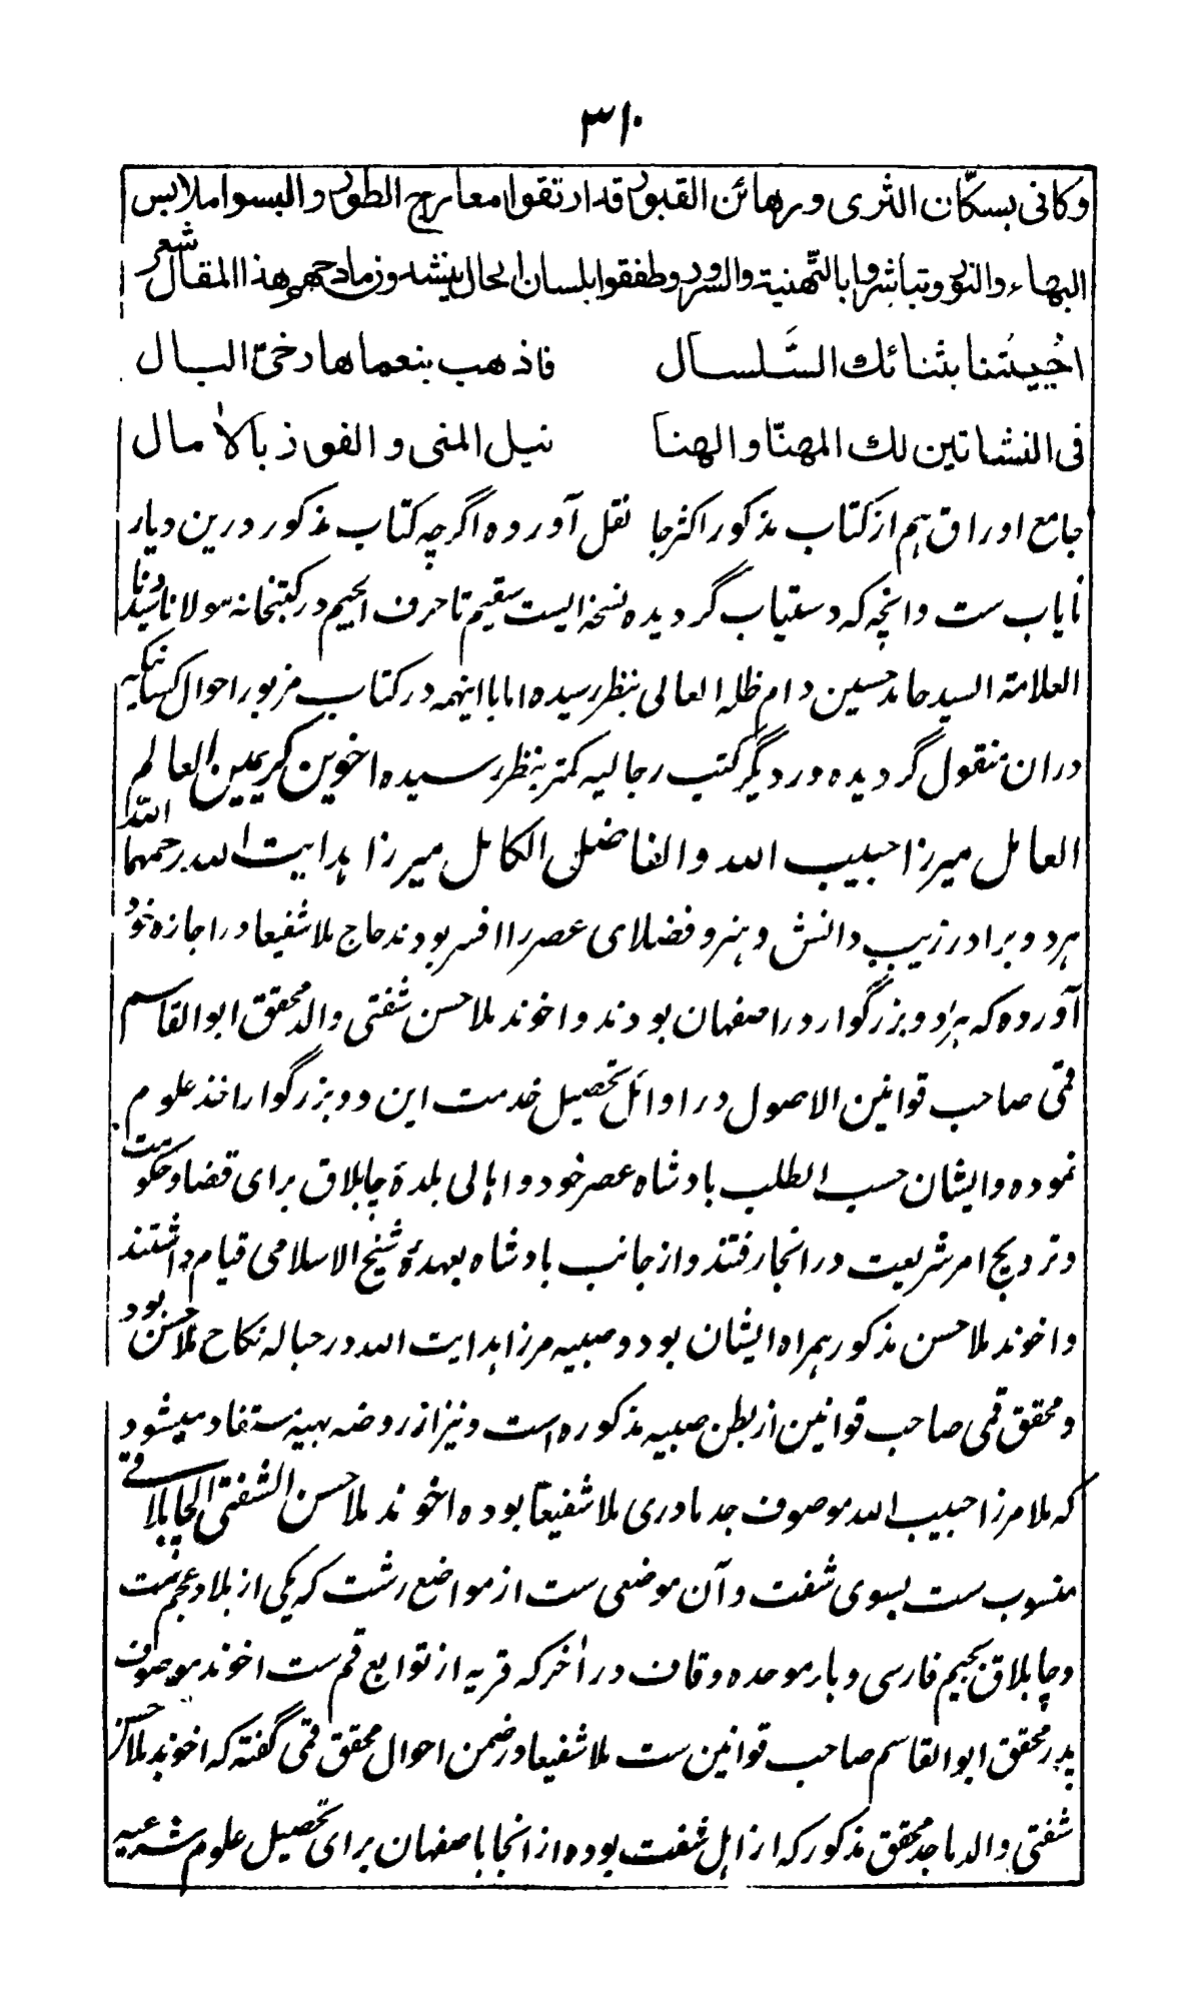 ۳۱۰
وكانى بسكّان الثرى ورهائن القبور قد ارتقوا معارج الطور والبسوا ملابس
البهاء والنور وتباشروا بالتّهنية والسرور وطفقوا بلسان الحال ينشدون مادحهم هذا المقال شعر
احُييتنا بثنائك السَّلسال فاذهب بنعماها رخىّ البال
فى النشاتين لك المهنّا والهنا نيل المنى والفوز بالاٰمال
جامع اوراق ہم از کتاب مذکور اکثر جا نقل آورده اگرچه کتاب مذکور درین دیار
نایاب ست وانچه که دستیاب گردیده نسخه ایست سقیم تا حرف الجیم در کتبخانه مولانا وسیدنا
العلامة السید حامد حسین دام ظله العالی بنظر رسیده اما با اینهمه در کتاب مزبور احوال کسانیکه
دران منقول گردیده در دیگر کتب رجالیه کمتر بنظر رسیده اخوین کریمین العالم
العامل میرزا حبیب الله والفاضل الکامل میرزا ہدایت الله رحمهما الله
ہر دو برادر زیب دانش و ہنر و فضلای عصر را افسر بودند حاج ملا شفیعا در اجازه خود
آورده که ہر دو بزرگوار در اصفهان بودند و اخوند ملا حسن شفتی والد محقق ابوالقاسم
قمی صاحب قوانین الاصول در اوائل تحصیل خدمت این دو بزرگوار اخذ علوم
نموده وایشان حسب الطلب بادشاه عصر خود و اہالی بلدۀ چاپلاق برای قضا و حکومت
و ترویج امر شریعت در انجا رفتند و از جانب بادشاه بعهدۀ شیخ الاسلامی قیام داشتند
و اخوند ملا حسن مذکور ہمراه ایشان بود و صبیه مرزا ہدایت الله در حباله نکاح ملا حسن بود
و محقق قمی صاحب قوانین از بطن صبیه مذکوره است و نیز از روضه بهیه مستفاد میشود
که ملا مرزا حبیب الله موصوف جد مادری ملا شفیعا بوده اخوند ملا حسن الشفتی الچاپلاقی
منسوب ست بسوی شفت و آن موضعی ست از مواضع رشت که یکی از بلاد عجم ست
و چاپلاق بجیم فارسی و باء موحده و قاف در اٰخر که قریه از توابع قم ست اخوند موصوف
پدر محقق ابوالقاسم صاحب قوانین ست ملا شفیعا در ضمن احوال محقق قمی گفته که اخوند ملا حسن
شفتی والد ماجد محقق مذکور که از اہل شفت بوده از انجا باصفهان برای تحصیل علوم شرعیه